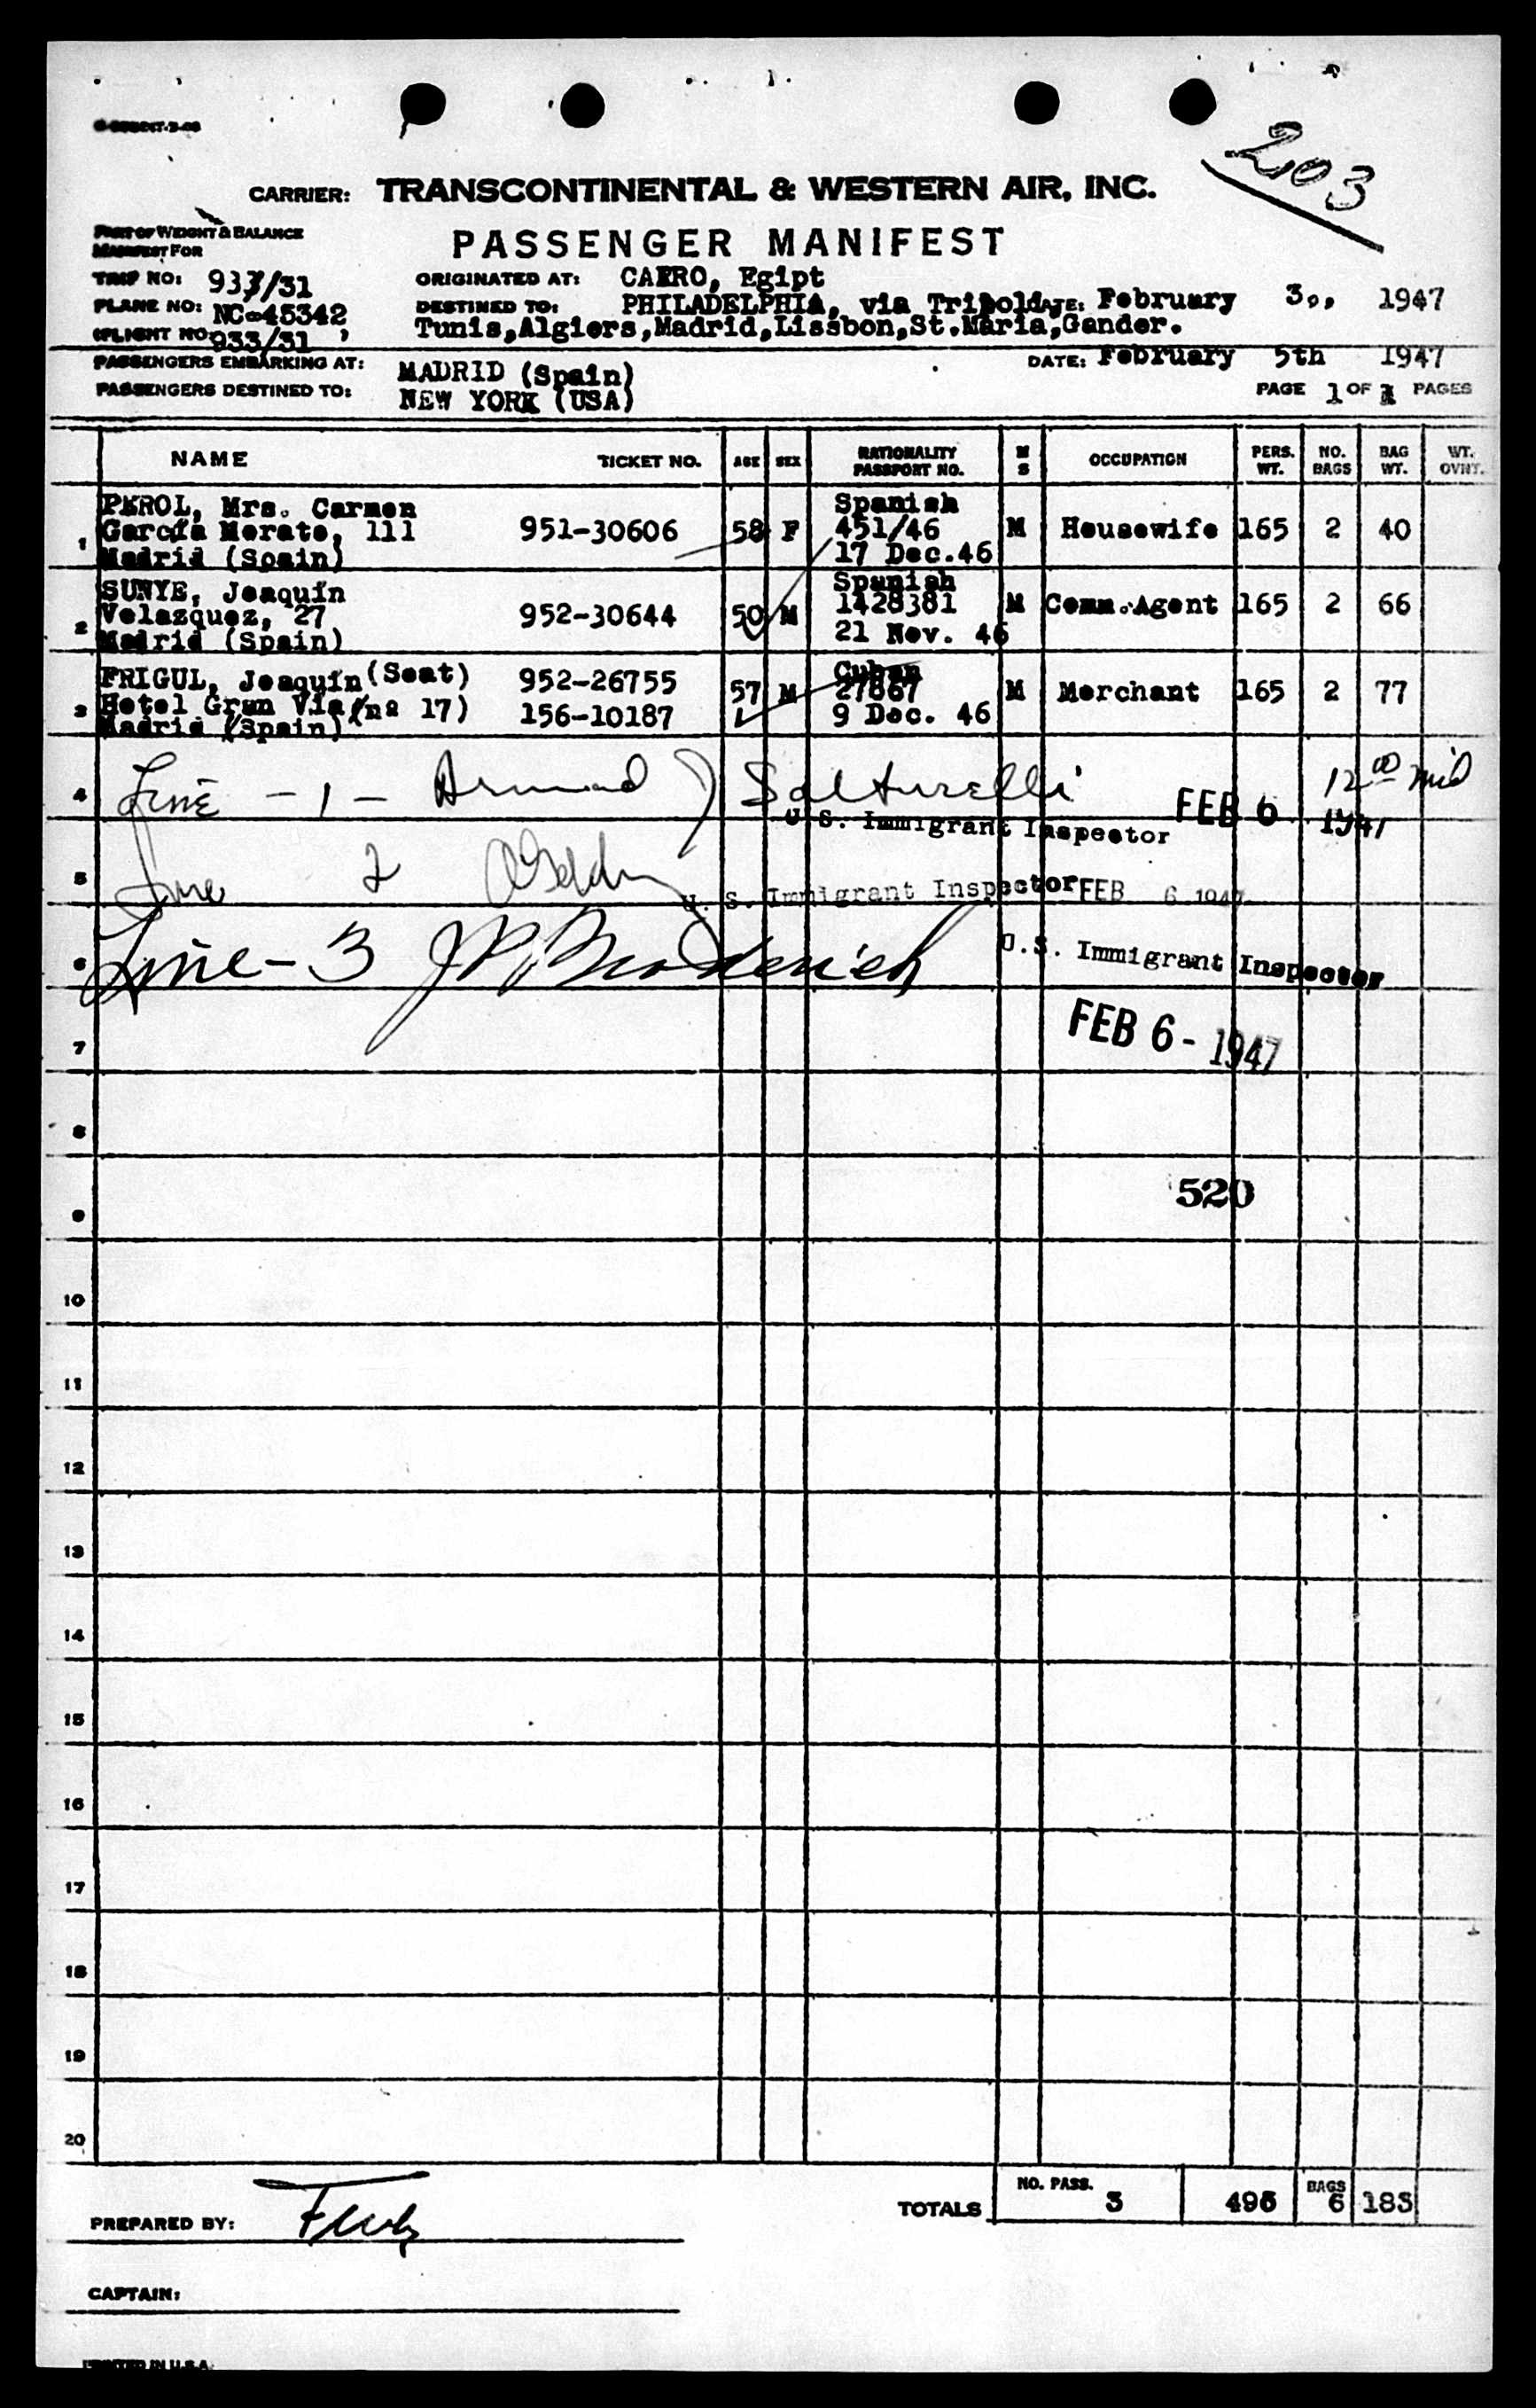 203
CARRIER: TRANSCONTINENTAL & WESTERN AIR, INC.
PART OF WEIGHT & BALANCE
MANIFEST FOR
PASSENGER MANIFEST
TRIP NO: 933/31 ORIGINATED AT: CAERO, Egipt
PLANE NO: NC-45342 DESTINED TO: PHILADELPHIA, via Tripoli DATE: February 3,, 1947
(FLIGHT NO 933/31 ) Tunis,Algiers,Madrid,Lissbon,St.Maria,Gander.
PASSENGERS EMBARKING AT: MADRID (Spain) DATE: February 5th 1947
PASSENGERS DESTINED TO: NEW YORK (USA) PAGE 1 OF 1 PAGES
NAME TICKET NO. AGE SEX NATIONALITY PASSPORT NO. M S OCCUPATION PERS. WT. NO. BAGS BAG WT. WT. OVNT.
PEROL, Mrs. Carmen Spanish
1 García Morato, 111 951-30606 58 F 451/46 M Housewife 165 2 40
Madrid (Spain) 17 Dec.46
SUNYE, Joaquín Spanish
2 Velazquez, 27 952-30644 50 M 1428381 M Comm.Agent 165 2 66
Madrid (Spain) 21 Nov. 46
FRIGUL, Joaquín (Seat) 952-26755 Cuban
3 Hotel Gran Via (nº 17) 156-10187 57 M 27867 M Merchant 165 2 77
Madrid (Spain) 9 Dec. 46
4 Line - 1 - Armand J Salturelli 12 00 mid
U. S. Immigrant Inspector FEB 6 1947
5 Line 2
U. S. Immigrant Inspector FEB 6 1947
6 Line - 3 J P Broderick U.S. Immigrant Inspector
7 FEB 6 - 1947
8
520
9
10
11
12
13
14
15
16
17
18
19
20
TOTALS NO. PASS. 3 495 BAGS 6 183
PREPARED BY:
CAPTAIN:
PRINTED IN U.S.A.